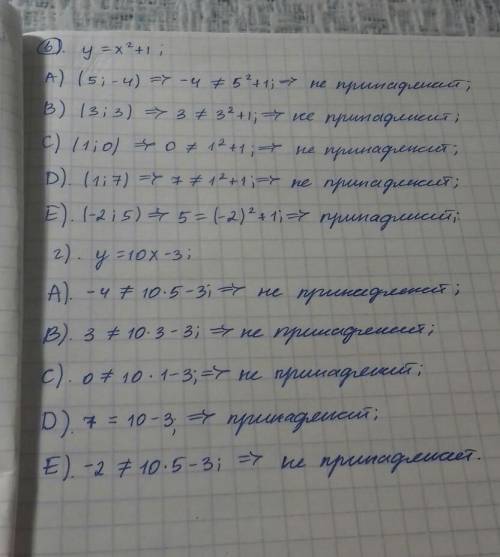 б). y = x²+1;
A) (5; -4) => -4 ≠ 5²+1; => не принадлежит;
B) (3; 3) => 3 ≠ 3²+1; => не принадлежит;
C) (1; 0) => 0 ≠ 1²+1; => не принадлежит;
D). (1; 7) => 7 ≠ 1²+1; => не принадлежит;
E). (-2; 5) => 5 = (-2)²+1; => принадлежит;
г). y = 10x - 3;
A). -4 ≠ 10·5-3; => не принадлежит;
B). 3 ≠ 10·3-3; => не принадлежит;
C). 0 ≠ 10·1-3; => не принадлежит;
D). 7 = 10-3; => принадлежит;
E). -2 ≠ 10·5-3; => не принадлежит.